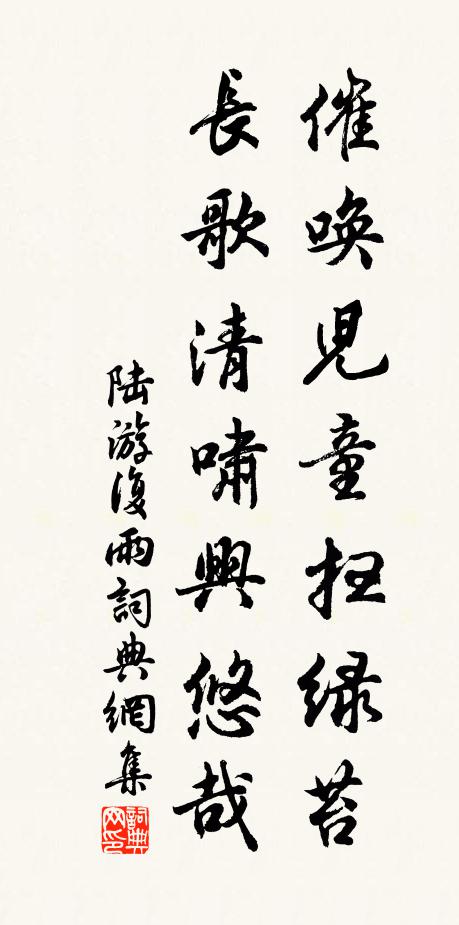 催唤兒童扫緑苔
長歌清嘯興悠哉
陆游復雨詞典網集
詞典网印